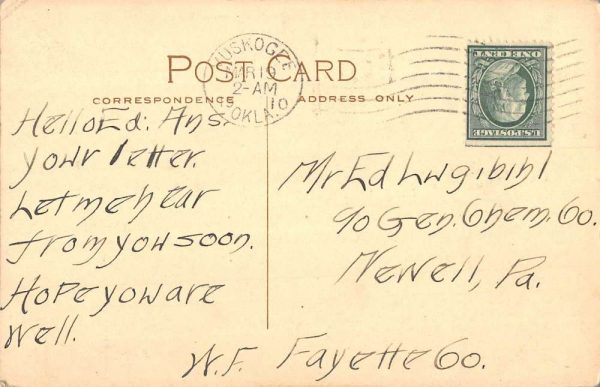 MUSKOGEE
MAR 19
2-AM
10
OKLA.
POST CARD
CORRESPONDENCE
ADDRESS ONLY
ONE CENT
U.S. POSTAGE
Hello Ed: Ans.
your letter.
Let me hear
from you soon.
Hope you are
well.
W.F.
Mr Ed
c/o Gen. Chem. Co.
Newell, Pa.
Fayette Co.